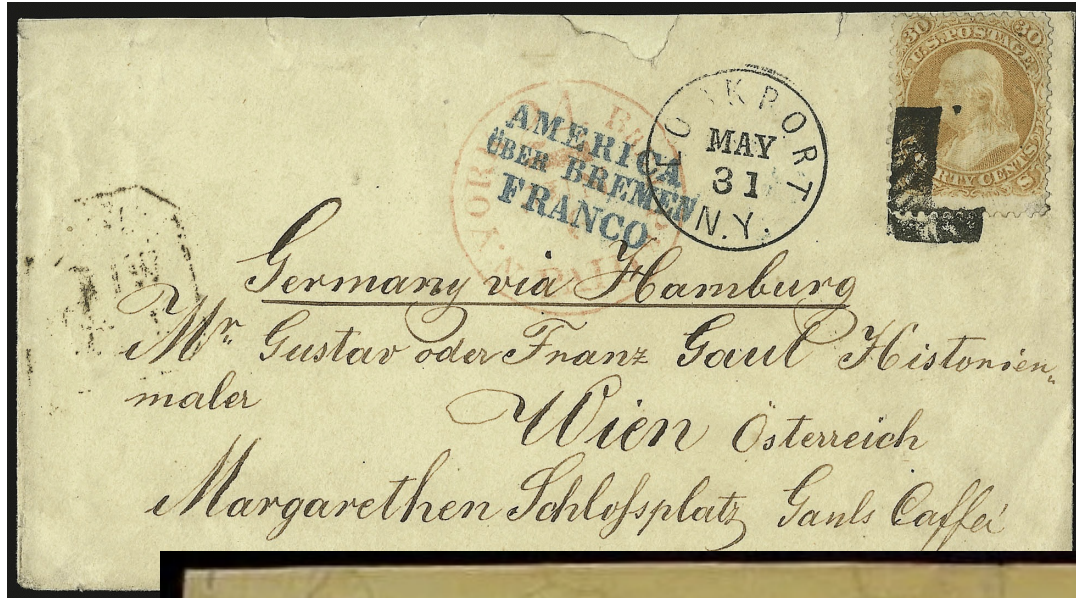 30 30
U.S. POSTAGE
CENTS
LOCKPORT
MAY
31
N.Y.
AMERICA
ÜBER BREMEN
FRANCO
PAID
Germany via Hamburg
Mr Gustav oder Franz Gaul Historien=
maler
Wien Österreich
Margarethen Schloßplatz Gauls Caffé